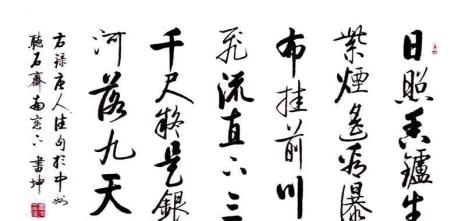 日照香鑪生
紫煙遙看瀑
布挂前川
飛流直下三
千尺疑是銀
河落九天
右録唐人佳句於中州
聽石齋南窗下書坤